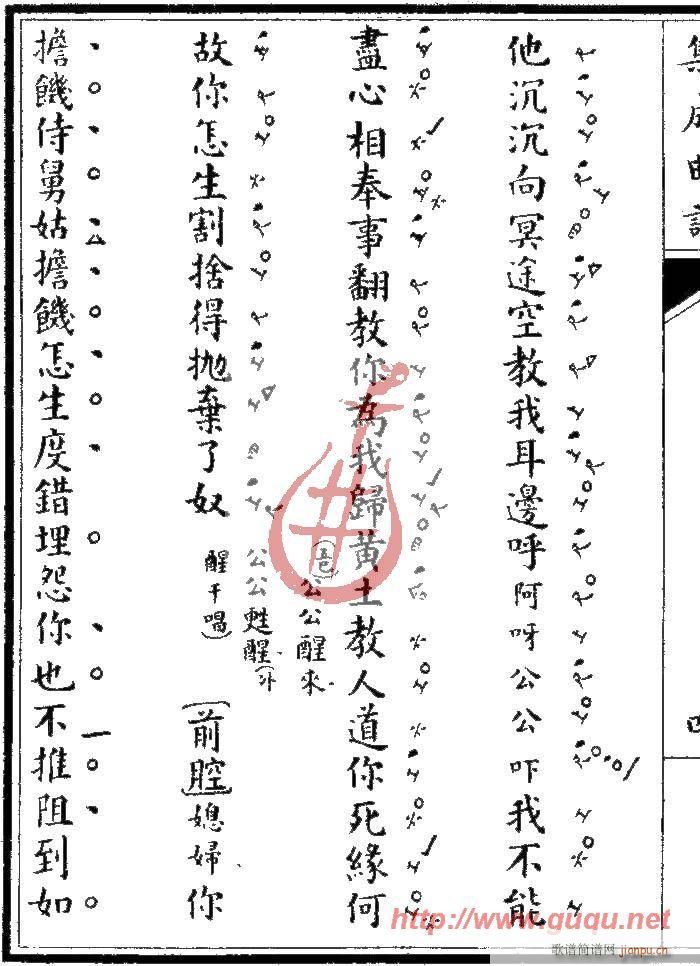 集成曲譜
四
他沉沉向冥途空教我耳邊呼阿呀公公吓我不能
盡心相奉事翻教你為我歸黃土教人道你死緣何
公公醒來
公公甦醒(外
醒干唱)
故你怎生割捨得拋棄了奴
[前腔]媳婦你
擔饑侍舅姑擔饑怎生度錯埋怨你也不推阻到如
http://www.guqu.net
歌谱简谱网
jianpu.cn